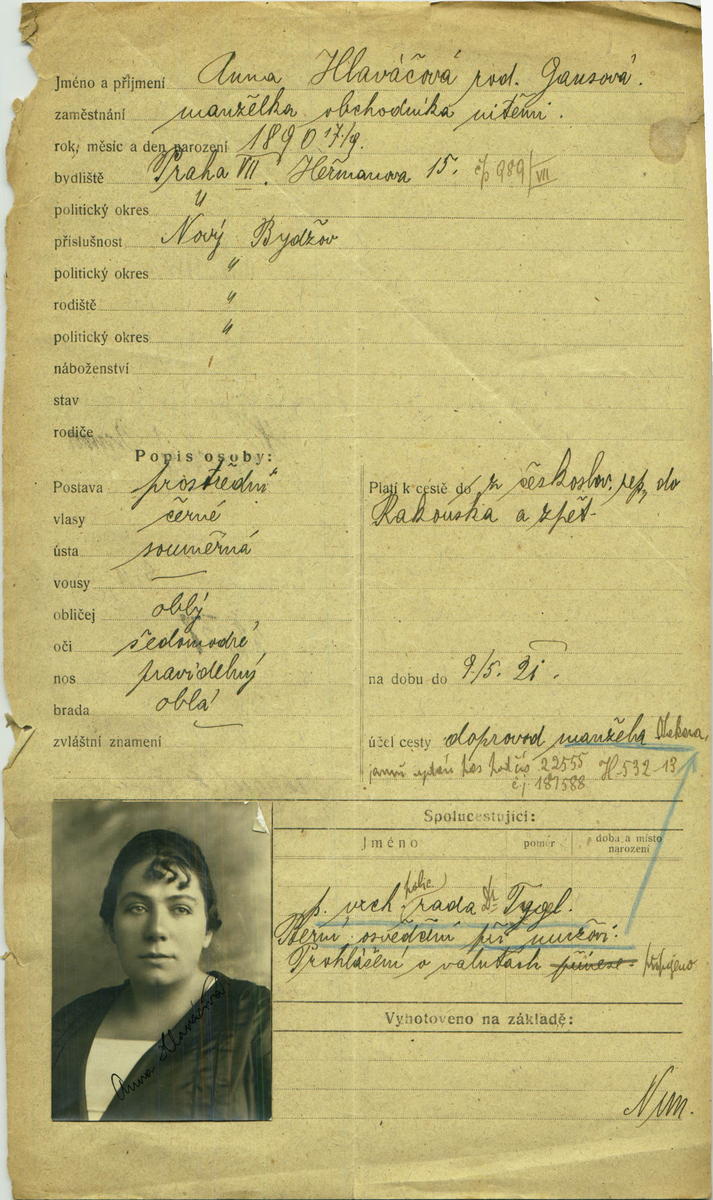 Jméno a příjmení Anna Hlaváčová rod. Gansová.
zaměstnání manželka obchodníka nitěmi.
rok, měsíc a den narození 1890 17/9.
bydliště Praha VII. Heřmanova 15. čp 989/VII
politický okres "
příslušnost Nový Bydžov
politický okres "
rodiště "
politický okres "
náboženství
stav
rodiče
Popis osoby:
Postava prostřední
vlasy černé
ústa souměrná
vousy —
obličej oblý
oči šedomodré
nos pravidelný
brada oblá
zvláštní znamení
Platí k cestě do z českoslov. rep. do
Rakouska a zpět
na dobu do 9/5. 21.
účel cesty doprovod manžela
pas pod čís 22555 H-532-13
čj. 187588
Spolucestující:
Jméno poměr doba a místo narození
p. vrch. polic. rada Dr Tygl.
Berní osvědčení při muži.
Prohlášení o valutách přinese. připojeno
Vyhotoveno na základě:
Anna Hlaváčová